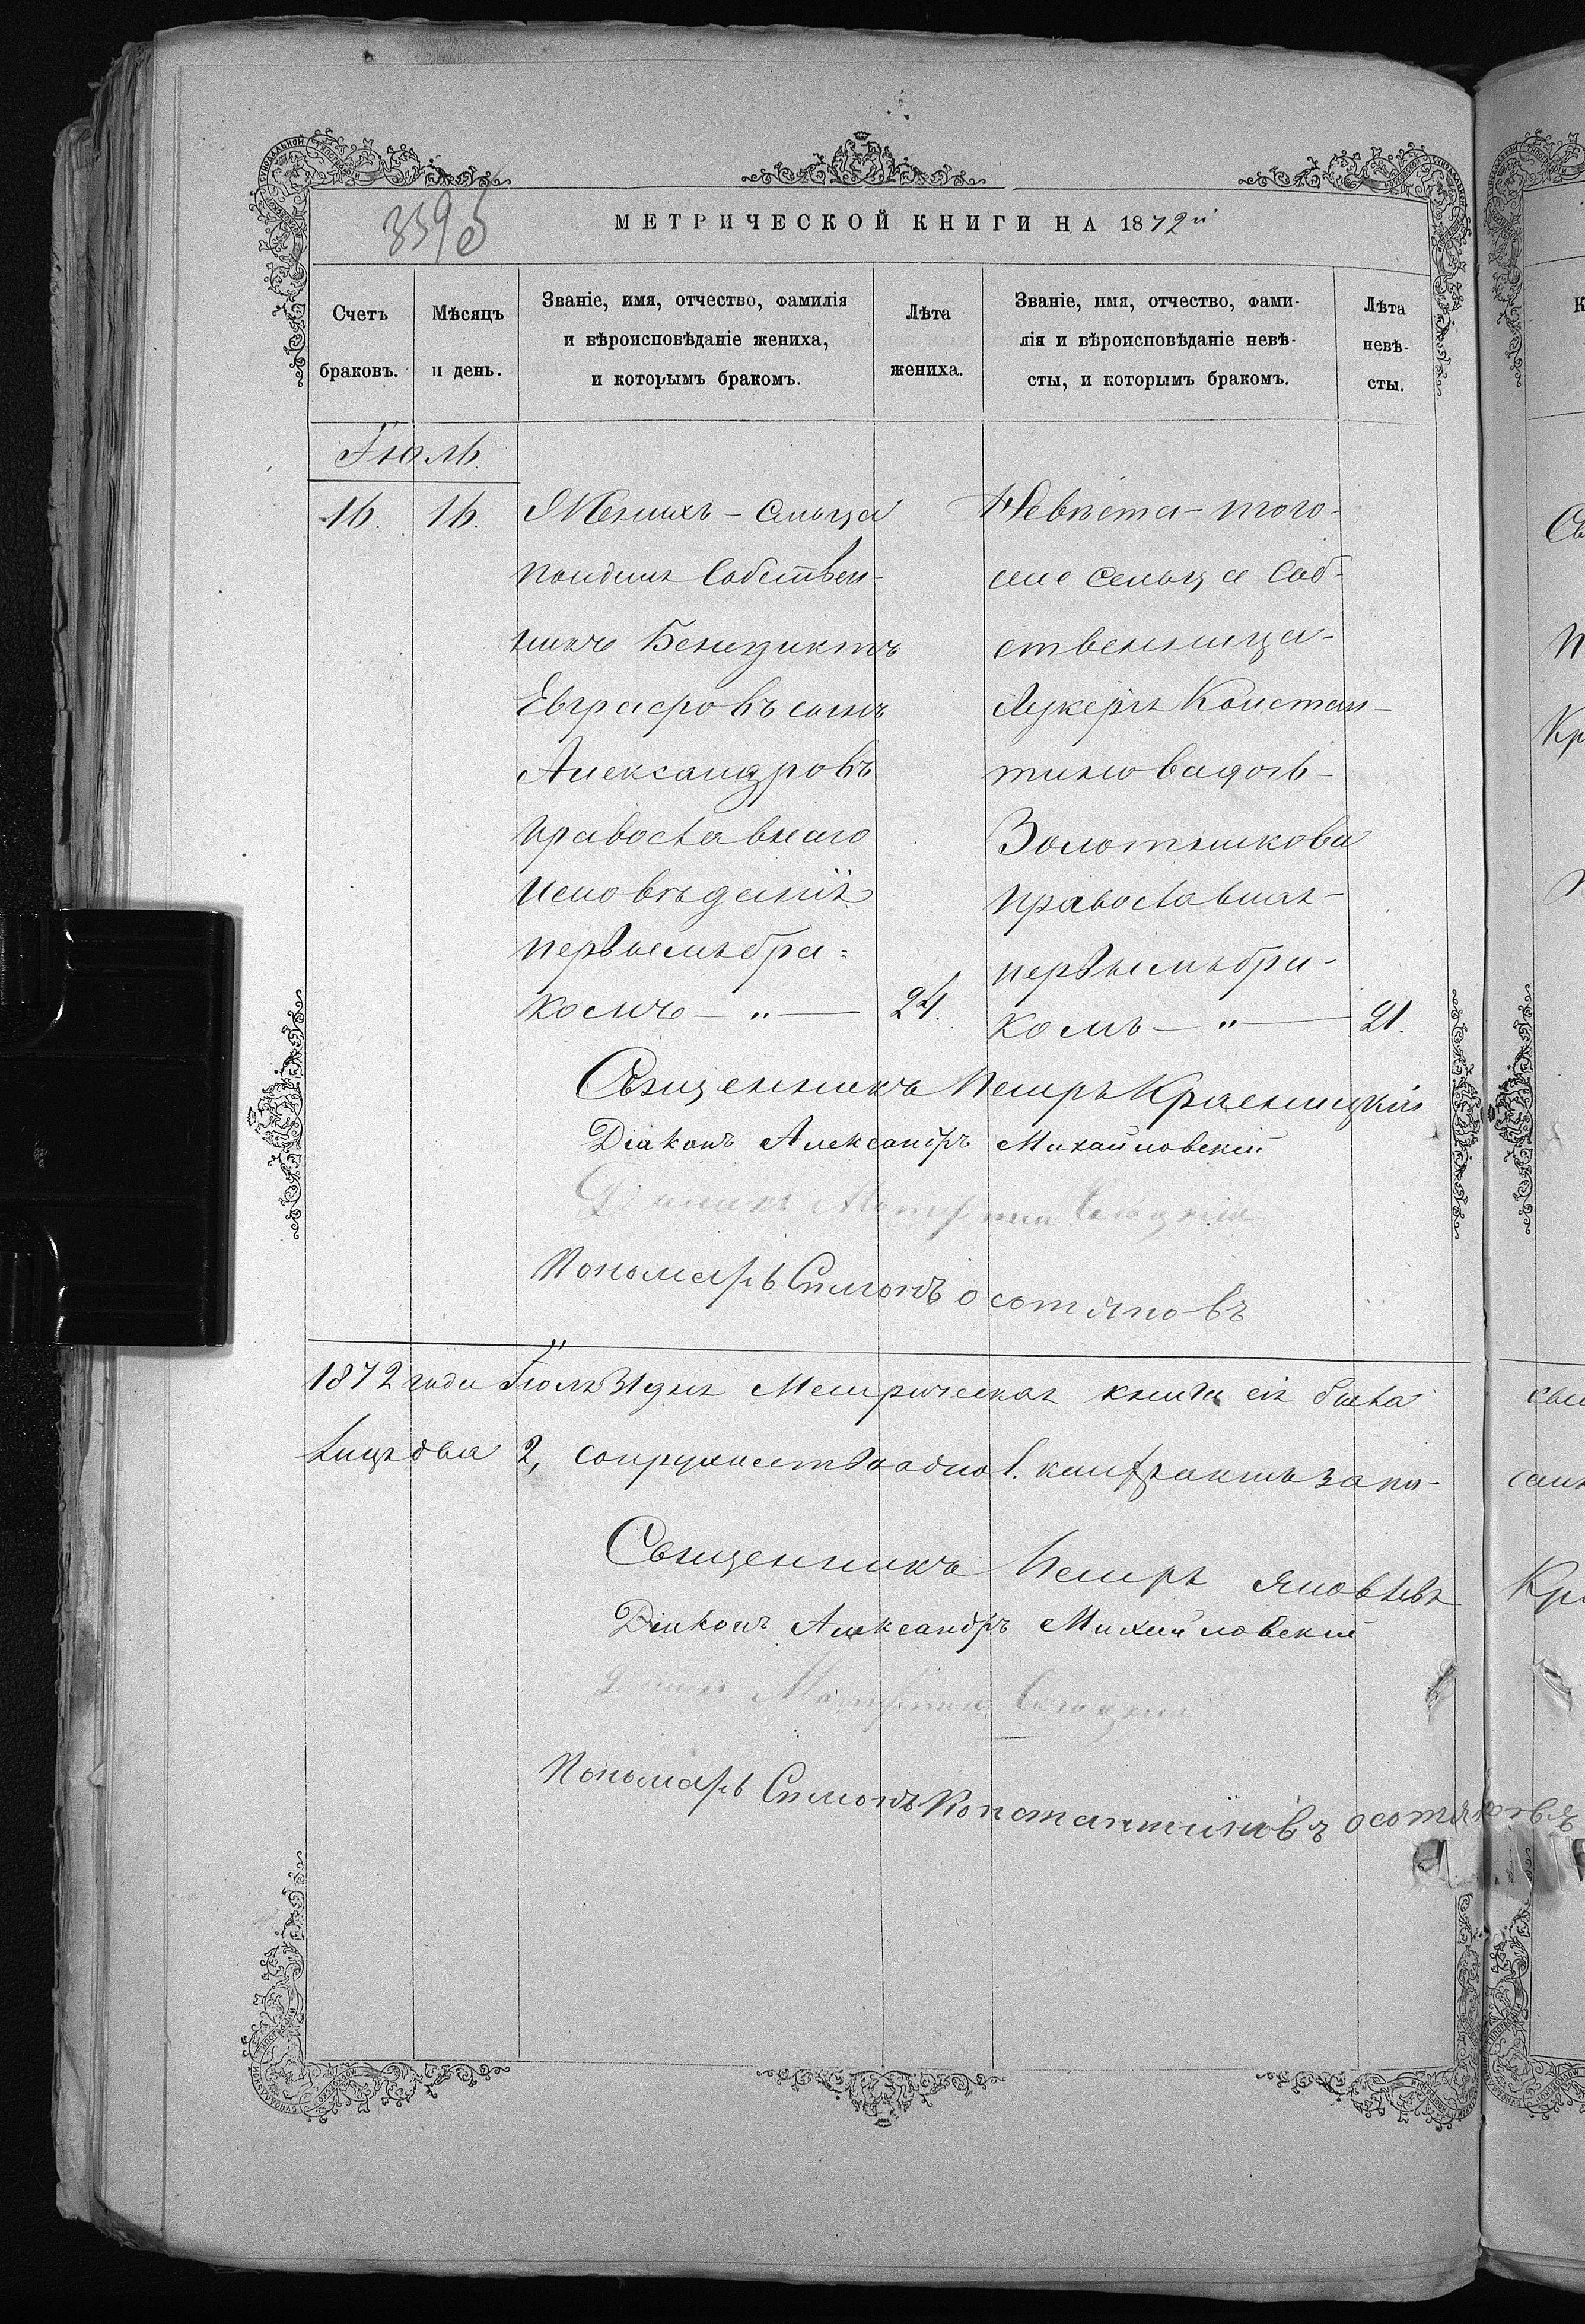 3395
МЕТРИЧЕСКОЙ КНИГИ НА 1872й
Счетъ браковъ.
Мѣсяцъ и день.
Званіе, имя, отчество, фамилія
и вѣроисповѣданіе жениха,
и которымъ бракомъ.
Лѣта жениха.
Званіе, имя, отчество, фами-
лія и вѣроисповѣданіе невѣ-
сты, и которымъ бракомъ.
Лѣта
невѣ-
сты.
Іюль.
16. 16.
Женихъ - сельца
собствен-
никъ Бенидиктъ
Евграфовъ сынъ
Александровъ
православнаго
исповѣданія
первымъ бра=
комъ — " — 24.
Невѣста - того-
же сельца соб-
ственница-
Лукерья Констан-
тинова дочь-
Золотникова
православная-
первымъ бра-
комъ — " — 21.
Священникъ Петръ Красницкій
Діаконъ Александръ Михайловскій
Пономарь Симонъ Осотяновъ
1872 года Іюля 31 дня Метрическая книга сія была
лицъ два 2, сопружество одно 1. запи-
Священникъ Петръ Яновлевъ
Діаконъ Александръ Михайловскій
Пономарь Симонъ Константиновъ Осотяновъ